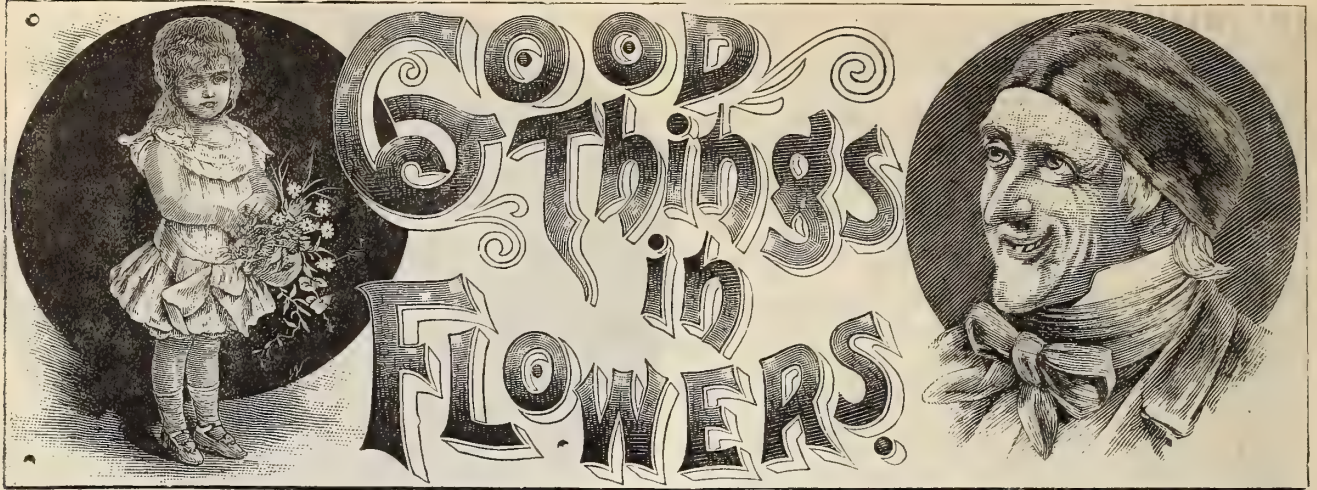 GOOD
Things
in
FLOWERS.